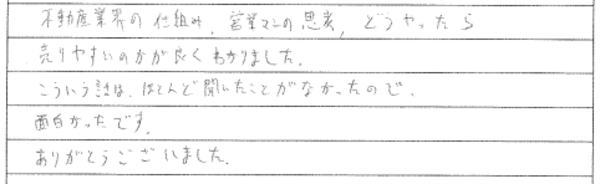 不動産業界の仕組み、営業マンの思考、どうやったら
売りやすいのかが良くわかりました。
こういう話は、ほとんど聞いたことがなかったので、
面白かったです。
ありがとうございました。